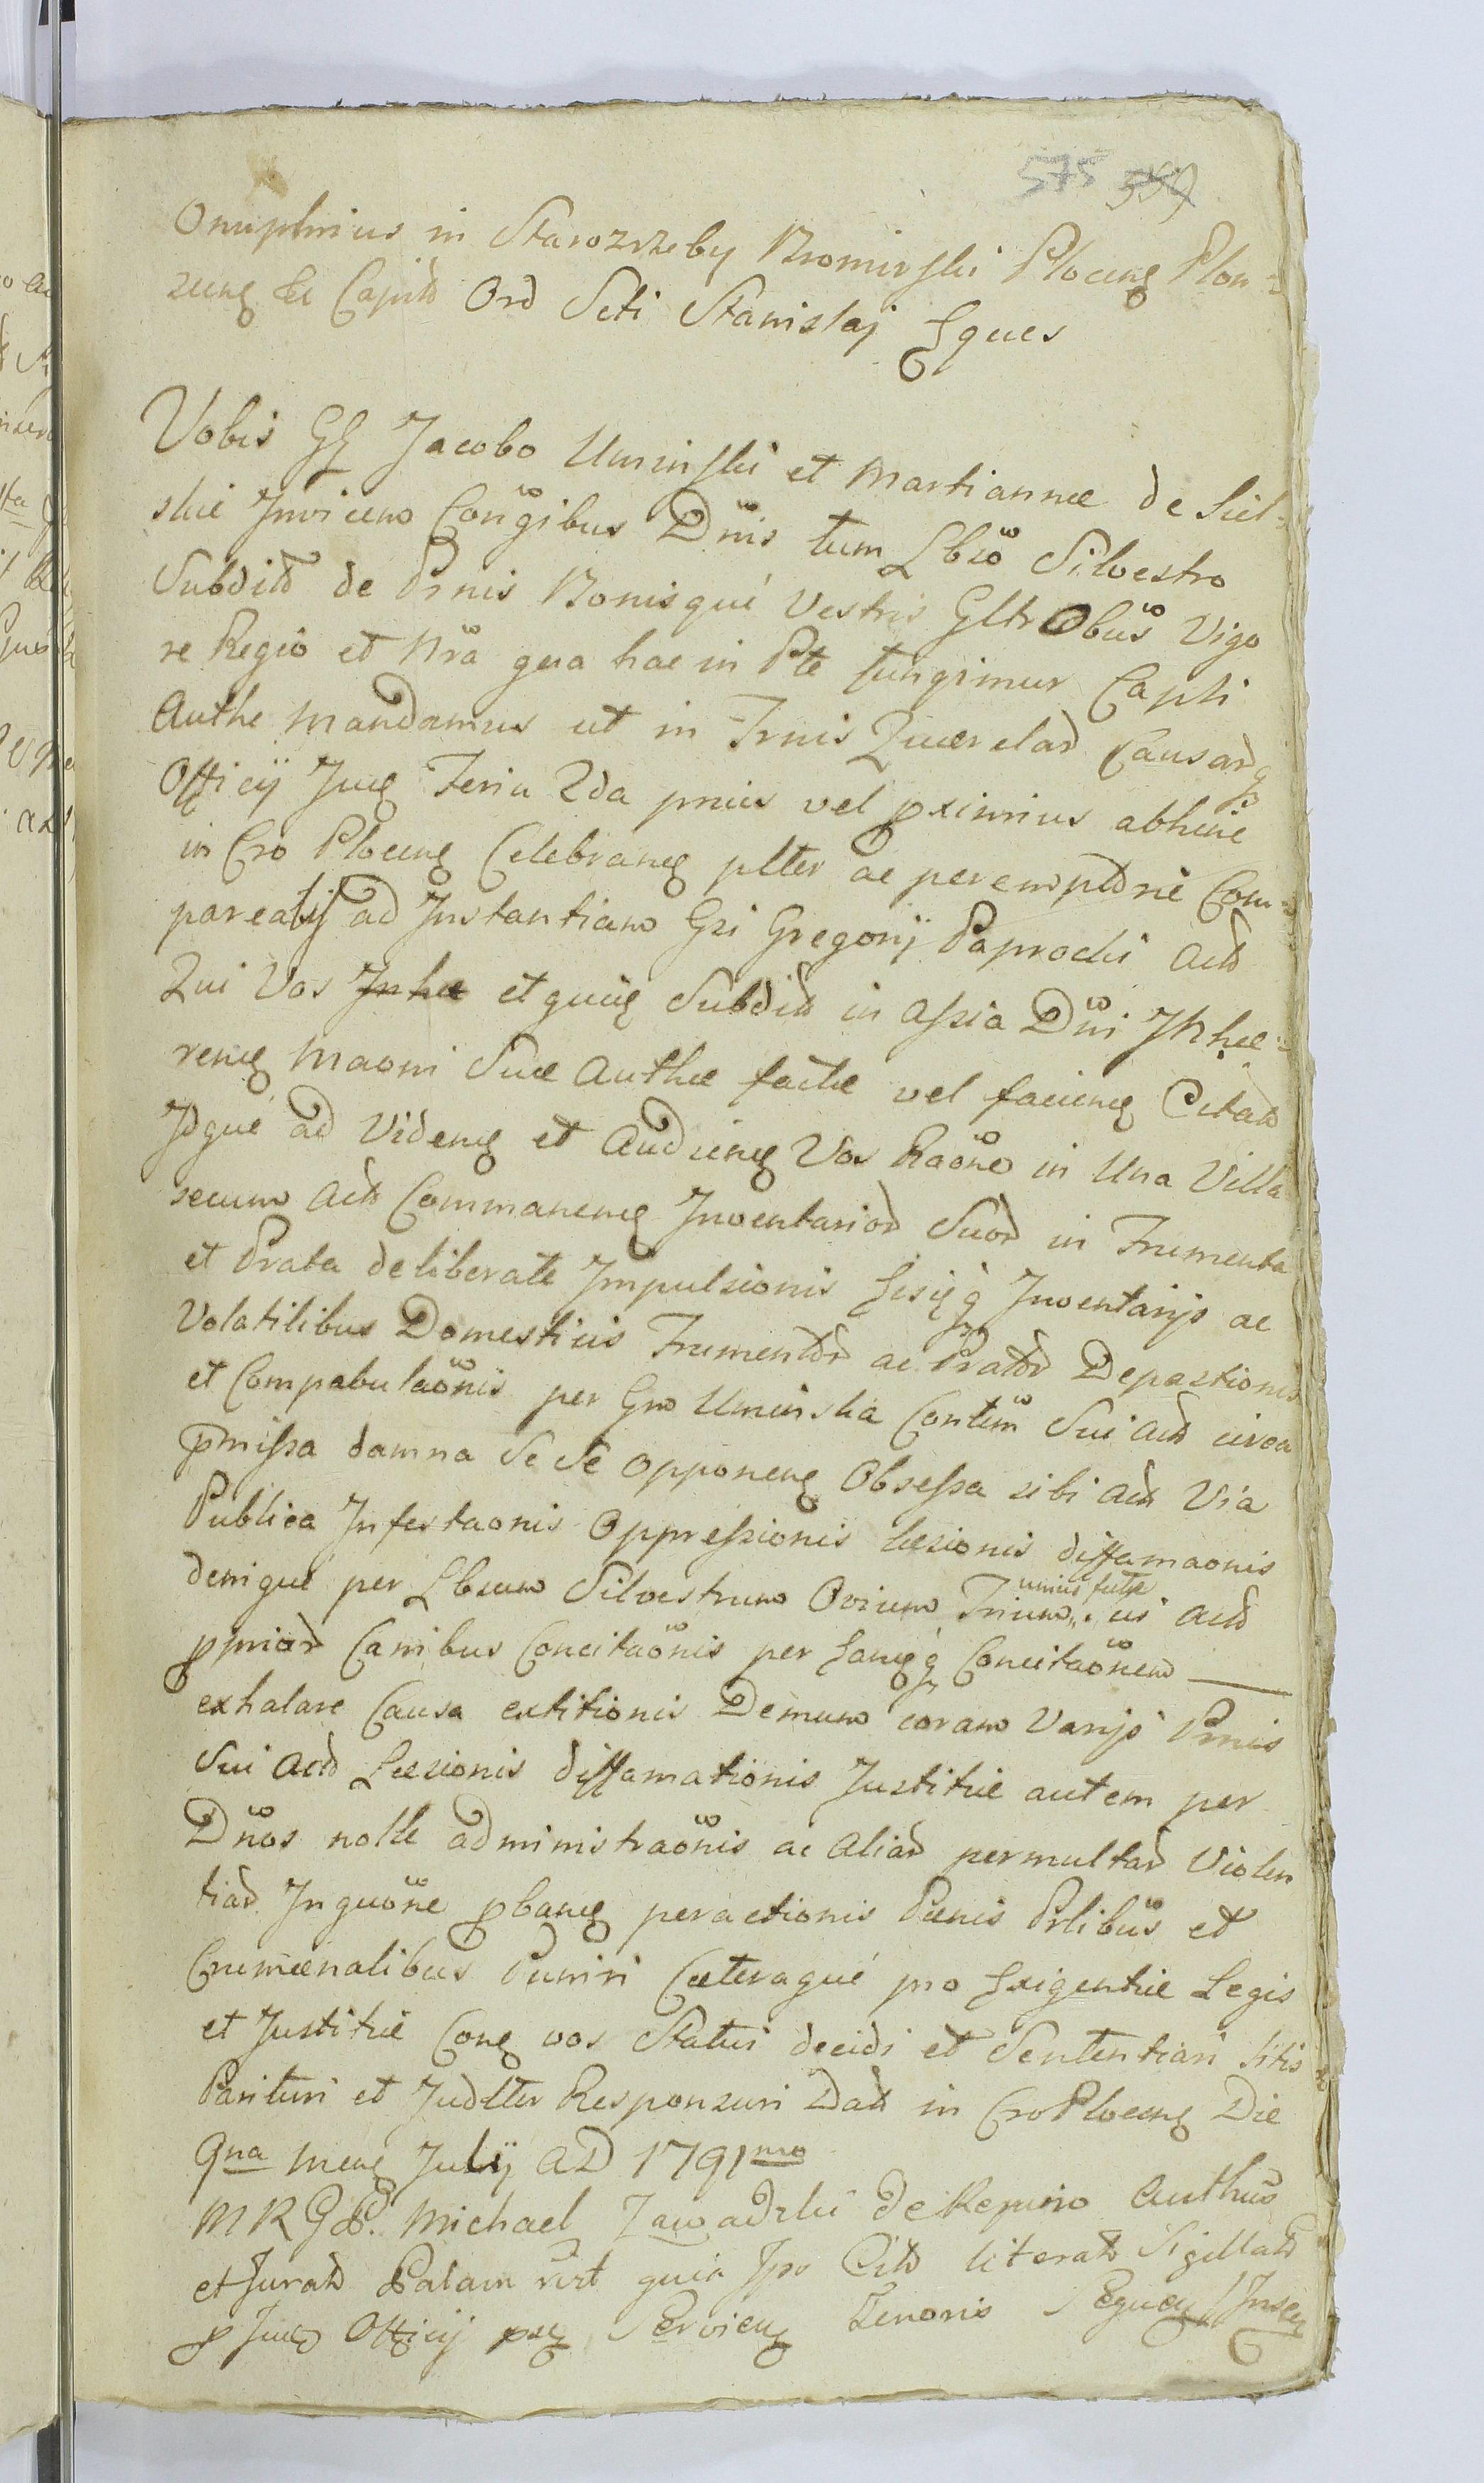 575 559
Onuphrius in Starozrzeby Bromirski Plocen Plon-
scen &c Capits Ord Scti Stanislaj Eques
Vobis GG Jacobo Uminski et Martiannæ de Siel-
skie Invicem Conjgibus Dnis tum Lbro Silvestro
Subdito de Prnis Bonisque Vestris Gltr Obus Vigo
re Regio et Nra qua hac in Pte fungimur Capli
Authe Mandamus ut in Trnis Querelar Causarq
Officÿ Juce Feria 2da prius vel pximius abhinc
in Cro Plocen Celebranen pltter ac peremptorie Com-
pareatis ad Instantiam Gsi Gregorÿ Paprocki Acts
Qui Vos et quem Subdits in Assia Dni Inhæ-
renen Maoni Suæ Authæ factæ vel faciene Citats
Idque ad Videne et Audiene Vos Raone in Una Villa
secum Acts Commanene Inventarior Suor in Frumenta
et Prata deliberate Impulsionis Eisqq Inventarijs ac
Volatilibus Domesticis Frumentor ac Prator Depastionis
et Compabulaonis per Gm Uminska Contm Sui Acts circa
pmissa damna Se Se Opponene Obsessa sibi Acts Via
Publica Infestaonis Oppressionis læsionis diffamaonis
denique per Lbrum Silvestrum Ovium Trium unius fetæ ei Acts
ppriar Canibus Concitaonis per Eamqq Concitaonem
exhalare Causa extitionis Demum coram Varijs Prnis
Sui Acts Læsionis diffamationis Justitiæ autem per
Dnos nolle administraonis ac Aliar permultar Violen
tiar Inquone pbane peractionis Pænis Prlibus et
Crimænalibus Puniri Cæteraque pro Exigentiæ Legis
et Justitiæ Cone vos Statui decidi et Sententiari Sitis
Parituri et Judltter Responsuri Dats in Cro Plocen Die
9na Mens Julÿ AD 1791mo
MRGP. Michael Zawadzki de Kepino Authus
et Jurats Palam rcrt quia Ips Cits literats Sigillats
p Juce Officÿ pse Serviens Tenoris Sequens Insce